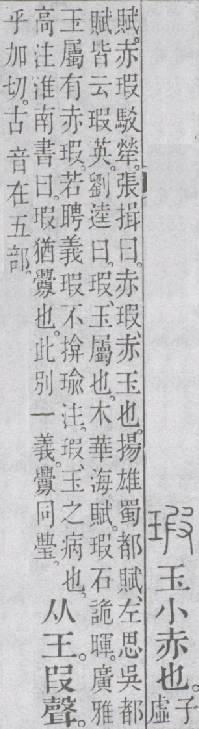 瑕 玉小赤也。子虛
賦。赤瑕駁犖。張揖曰。赤瑕、赤玉也。揚雄蜀都賦、左思吳都
賦皆云瑕英。劉逵曰。瑕、玉屬也。木華海賦。瑕石詭暉。廣雅
玉屬有赤瑕。若聘義瑕不揜瑜注。瑕、玉之病也。
高注淮南書曰。瑕猶釁也。此別一義。釁同璺。
从王。叚聲。
乎加切。古音在五部。